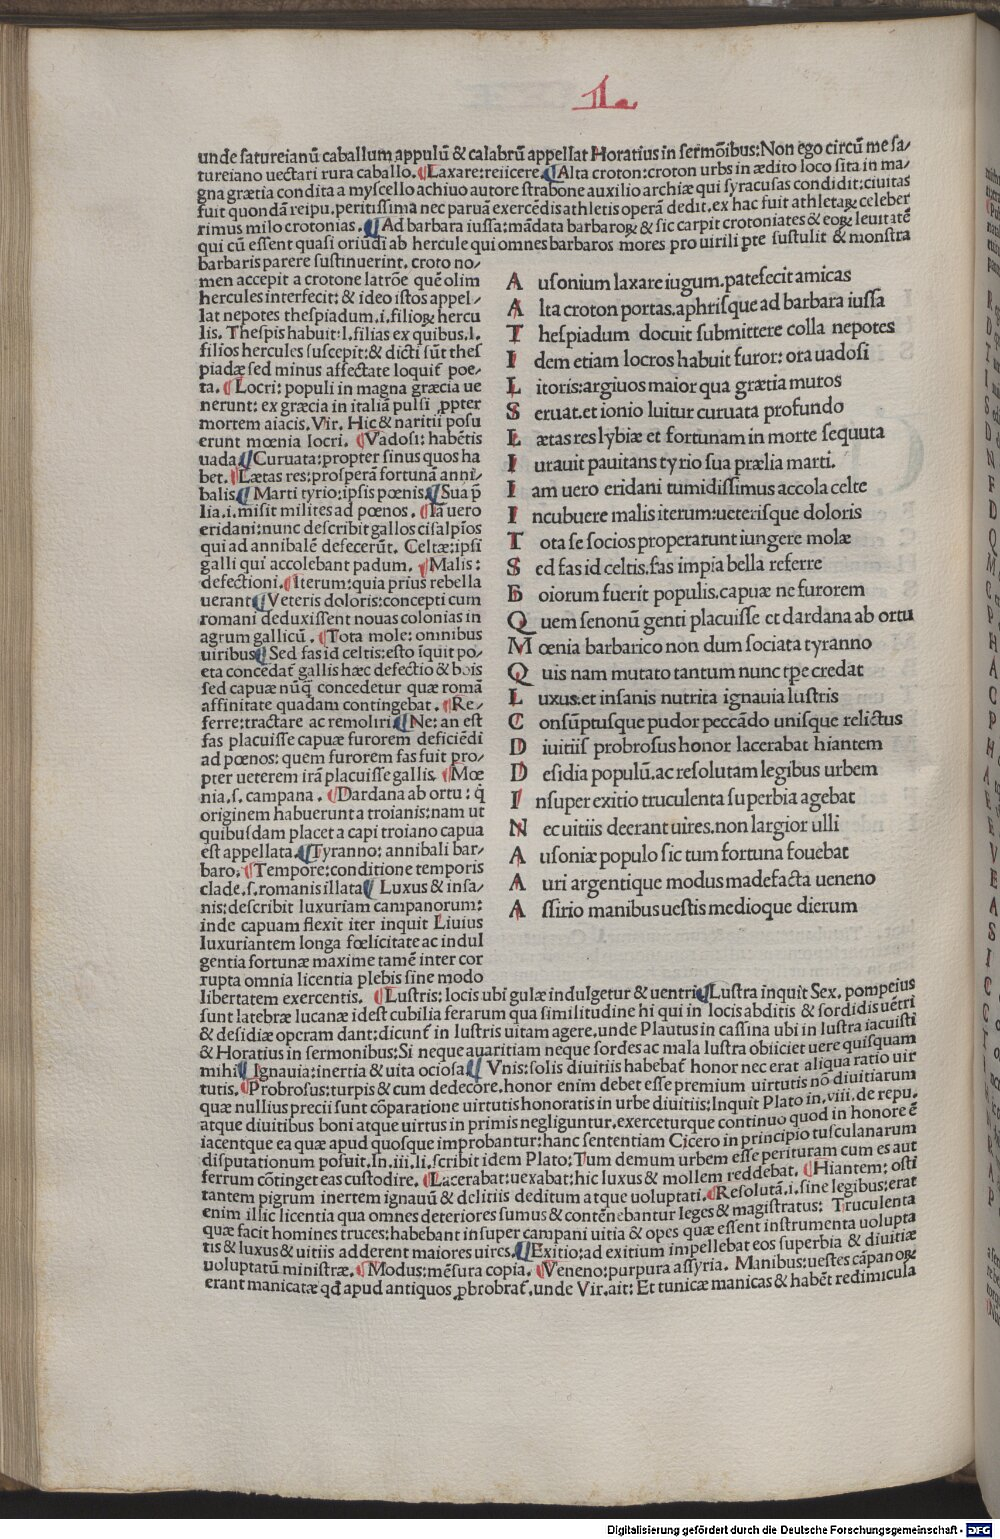 unde satureianū caballum appulū & calabrū appellat Horatius in sermōibus: Non ego circū me sa-
tureiano uectari rura caballo. ¶Laxare: reiicere. ¶Alta croton: croton urbs in ædito loco sita in ma-
gna grætia condita a myscello achiuo autore strabone auxilio archiæ qui syracusas condidit: ciuitas
fuit quondā reipu. peritissima nec paruā exercēdis athletis operā dedit. ex hac fuit athletaꝝ celeber
rimus milo crotonias. ¶Ad barbara iussa: mādata barbaroꝝ & sic carpit crotoniates & eoꝝ leuitatē
qui cū essent quasi oriūdi ab hercule qui omnes barbaros mores pro uirili ꝑte sustulit & monstra
barbaris parere sustinuerint. croto no-
men accepit a crotone latrōe quē olim
hercules interfecit: & ideo istos appel-
lat nepotes thespiadum .i. filioꝝ hercu
lis. Thespis habuit .l. filias ex quibus .l.
filios hercules suscepit: & dicti sūt thes
piadæ sed minus affectate loquit̃ poe-
ta. ¶Locri: populi in magna græcia ue
nerunt: ex græcia in italiā pulsi ꝓpter
mortem aiacis. Vir. Hic & naritii posu
erunt mœnia locri. ¶Vadosi: habētis
uada. ¶Curuata: propter sinus quos ha
bet. ¶Lætas res: prosperā fortunā anni-
balis. ¶Marti tyrio: ipsis pœnis. ¶Sua p̄
lia .i. misit milites ad pœnos. ¶Iā uero
eridani: nunc describit gallos cisalpios
qui ad annibalē defecerūt. Celtæ: ipsi
galli qui accolebant padum. ¶Malis:
defectioni. ¶Iterum: quia prius rebella
uerant. ¶Veteris doloris: concepti cum
romani deduxissent nouas colonias in
agrum gallicū. ¶Tota mole: omnibus
uiribus. ¶Sed fas id celtis: esto īquit po-
eta concedat̃ gallis hæc defectio & bois
sed capuæ nūq̄ concedetur quæ romā
affinitate quadam contingebat. ¶Re-
ferre: tractare ac remoliri. ¶Ne: an est
fas placuisse capuæ furorem deficiēdi
ad pœnos: quem furorem fas fuit pro-
pter ueterem irā placuisse gallis. ¶Mœ
nia .s. campana. ¶Dardana ab ortu: q̄
originem habuerunt a troianis: nam ut
quibusdam placet a capi troiano capua
est appellata. ¶Tyranno: annibali bar-
baro. ¶Tempore: conditione temporis
clade .s. romanis illata. ¶Luxus & insa-
nis: describit luxuriam campanorum:
inde capuam flexit iter inquit Liuius
luxuriantem longa fœlicitate ac indul
gentia fortunæ maxime tamē inter cor
rupta omnia licentia plebis sine modo
libertatem exercentis. ¶Lustris: locis ubi gulæ indulgetur & uentri. ¶Lustra inquit Sex. pompeius
sunt latebræ lucanæ idest cubilia ferarum qua similitudine hi qui in locis abditis & sordidis uētri
& desidiæ operam dant: dicunt̃ in lustris uitam agere. unde Plautus in cassina ubi in lustra iacuisti
& Horatius in sermonibus: Si neque auaritiam neque sordes ac mala lustra obiiciet uere quisquam
mihi. ¶Ignauia: inertia & uita ociosa. ¶Vnis: solis diuitiis habebat̃ honor nec erat aliqua ratio uir
tutis. ¶Probrosus: turpis & cum dedecore. honor enim debet esse premium uirtutis nō diuitiarum
quæ nullius precii sunt cōparatione uirtutis honoratis in urbe diuitiis: Inquit Plato in .viii. de repu.
atque diuitibus boni atque uirtus in primis negliguntur. exerceturque continuo quod in honore ē
iacentque ea quæ apud quosque improbantur: hanc sententiam Cicero in principio tusculanarum
disputationum posuit. In .iii. li. scribit idem Plato: Tum demum urbem esse perituram cum es aut
ferrum cōtinget eas custodire. ¶Lacerabat: uexabat: hic luxus & mollem reddebat. ¶Hiantem: osti
tantem pigrum inertem ignauū & delitiis deditum atque uoluptati. ¶Resolutā .i. sine legibus: erat
enim illic licentia qua omnes deteriores sumus & contēnebantur leges & magistratus: Truculenta
quæ facit homines truces: habebant insuper campani uitia & opes quæ essent instrumenta uolupta
tis & luxus & uitiis adderent maiores uires. ¶Exitio: ad exitium impellebat eos superbia & diuitiæ
uoluptatū ministræ. ¶Modus: mēsura copia. ¶Veneno: purpura assyria. Manibus: uestes cāpanoꝝ
erant manicatæ qđ apud antiquos ꝓbrobrat̃. unde Vir. ait: Et tunicæ manicas & habēt redimicula
A usonium laxare iugum. patefecit amicas
A lta croton portas. aphrisque ad barbara iussa
T hespiadum docuit submittere colla nepotes
I dem etiam locros habuit furor: ora uadosi
L itoris: argiuos maior qua grætia muros
S eruat. et ionio luitur curuata profundo
L ætas res lybiæ et fortunam in morte sequuta
I urauit pauitans tyrio sua prælia marti.
I am uero eridani tumidissimus accola celte
I ncubuere malis iterum: ueterisque doloris
T ota se socios properarunt iungere molæ
S ed fas id celtis. fas impia bella referre
B oiorum fuerit populis. capuæ ne furorem
Q uem senonū genti placuisse et dardana ab ortu
M œnia barbarico non dum sociata tyranno
Q uis nam mutato tantum nunc tpe credat
L uxus: et insanis nutrita ignauia lustris
C onsūptusque pudor peccādo unisque relictus
D iuitiis probrosus honor lacerabat hiantem
D esidia populū. ac resolutam legibus urbem
I nsuper exitio truculenta superbia agebat
N ec uitiis deerant uires. non largior ulli
A usoniæ populo sic tum fortuna fouebat
A uri argentique modus madefacta ueneno
A ssirio manibus uestis medioque dierum
Digitalisierung gefördert durch die Deutsche Forschungsgemeinschaft - DFG